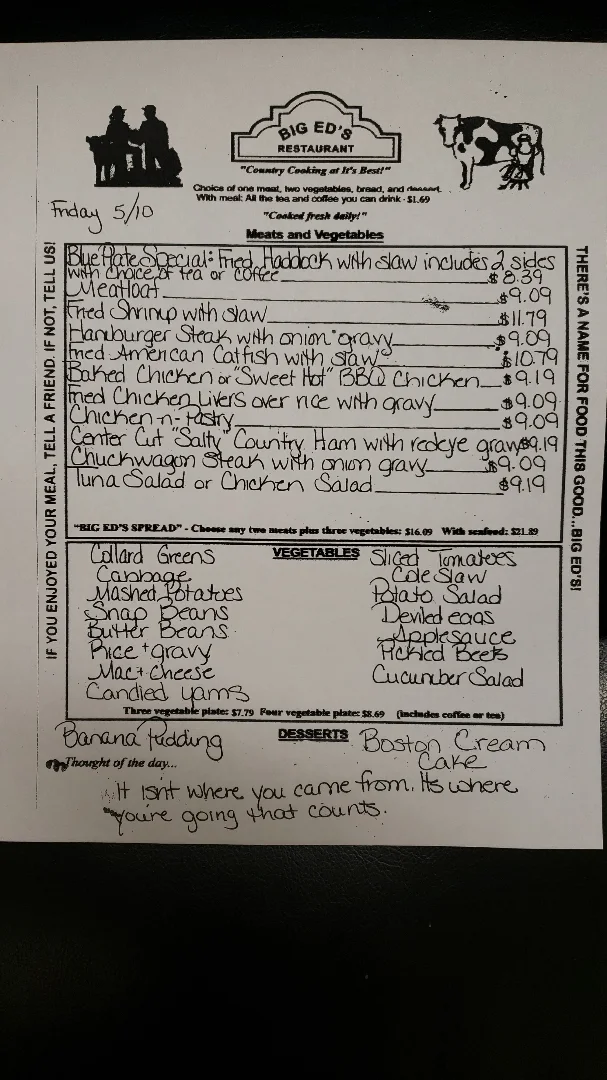 BIG ED'S
RESTAURANT
"Country Cooking at It's Best!"
Choice of one meat, two vegetables, bread, and dessert.
With meal: All the tea and coffee you can drink - $1.69
"Cooked fresh daily!"
Friday 5/10
Meats and Vegetables
IF YOU ENJOYED YOUR MEAL, TELL A FRIEND. IF NOT, TELL US!
THERE'S A NAME FOR FOOD THIS GOOD...BIG ED'S!
Blue Plate Special: Fried Haddock with slaw includes 2 sides
with choice of tea or coffee $8.39
Meatloaf $9.09
Fried Shrimp with slaw $11.79
Hamburger Steak with onion gravy $9.09
Fried American Catfish with slaw $10.79
Baked Chicken or "Sweet Hot" BBQ Chicken $9.19
Fried Chicken Livers over rice with gravy $9.09
Chicken-n-Pastry $9.09
Center Cut "Salty" Country Ham with redeye gravy $9.19
Chuckwagon Steak with onion gravy $9.09
Tuna Salad or Chicken Salad $9.19
"BIG ED'S SPREAD" - Choose any two meats plus three vegetables: $16.09 With seafood: $21.89
VEGETABLES
Collard Greens
Cabbage
Mashed Potatoes
Snap Beans
Butter Beans
Rice + gravy
Mac + cheese
Candied yams
Sliced Tomatoes
Cole Slaw
Potato Salad
Deviled eggs
Applesauce
Pickled Beets
Cucumber Salad
Three vegetable plate: $7.79 Four vegetable plate: $8.69 (includes coffee or tea)
DESSERTS
Banana Pudding
Boston Cream
Cake
Thought of the day...
It isn't where you came from. Its where
you're going that counts.